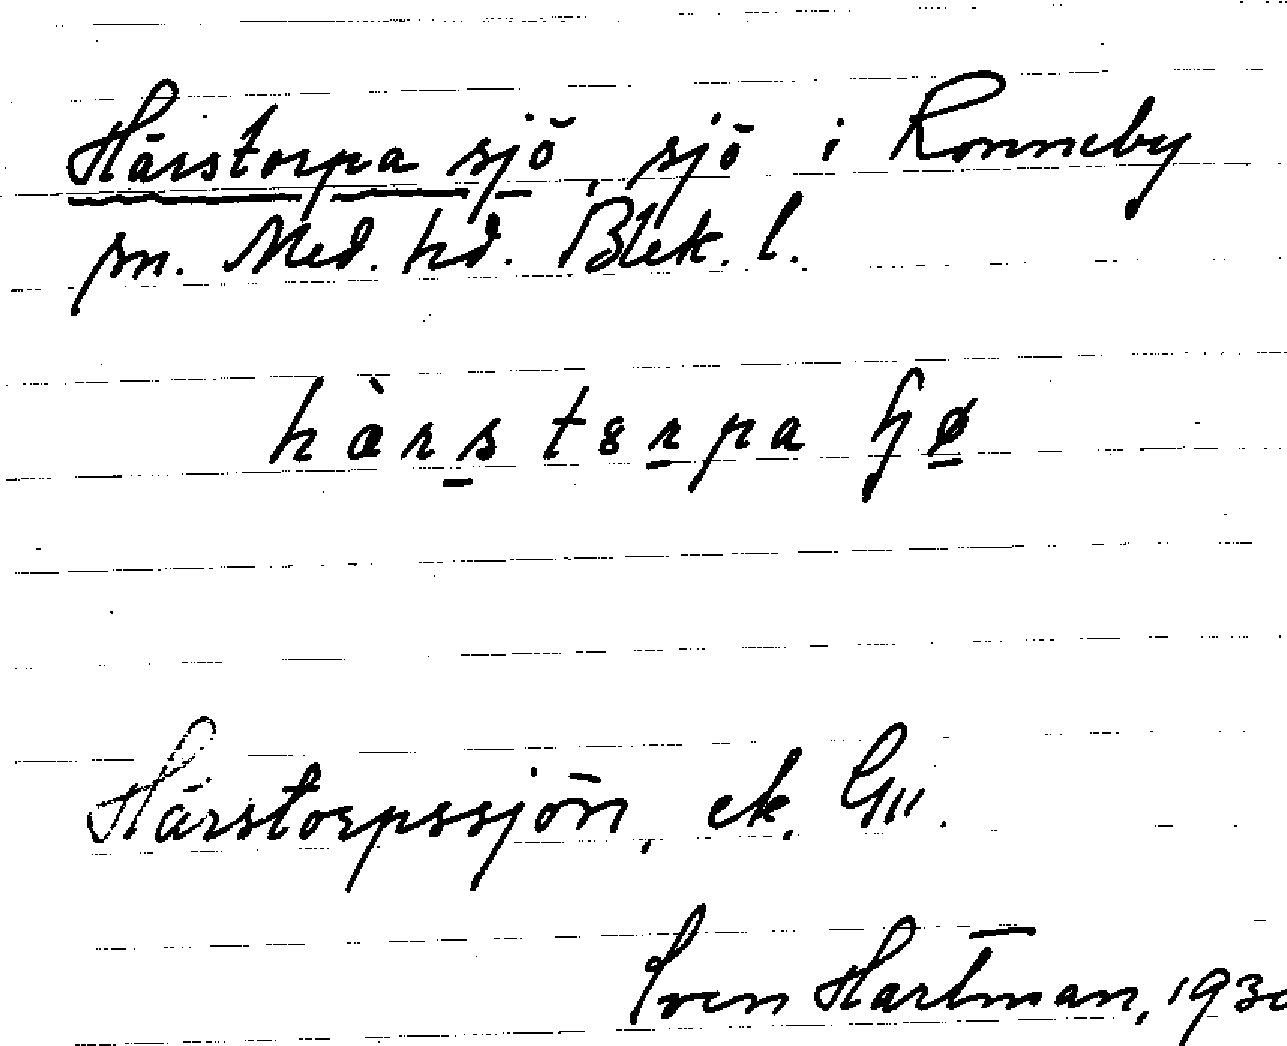 Härstorpa sjö, sjö i Ronneby
sn. Med. hd. Blek. l.
Härstorpssjön, ek.
Sven Hartman, 193